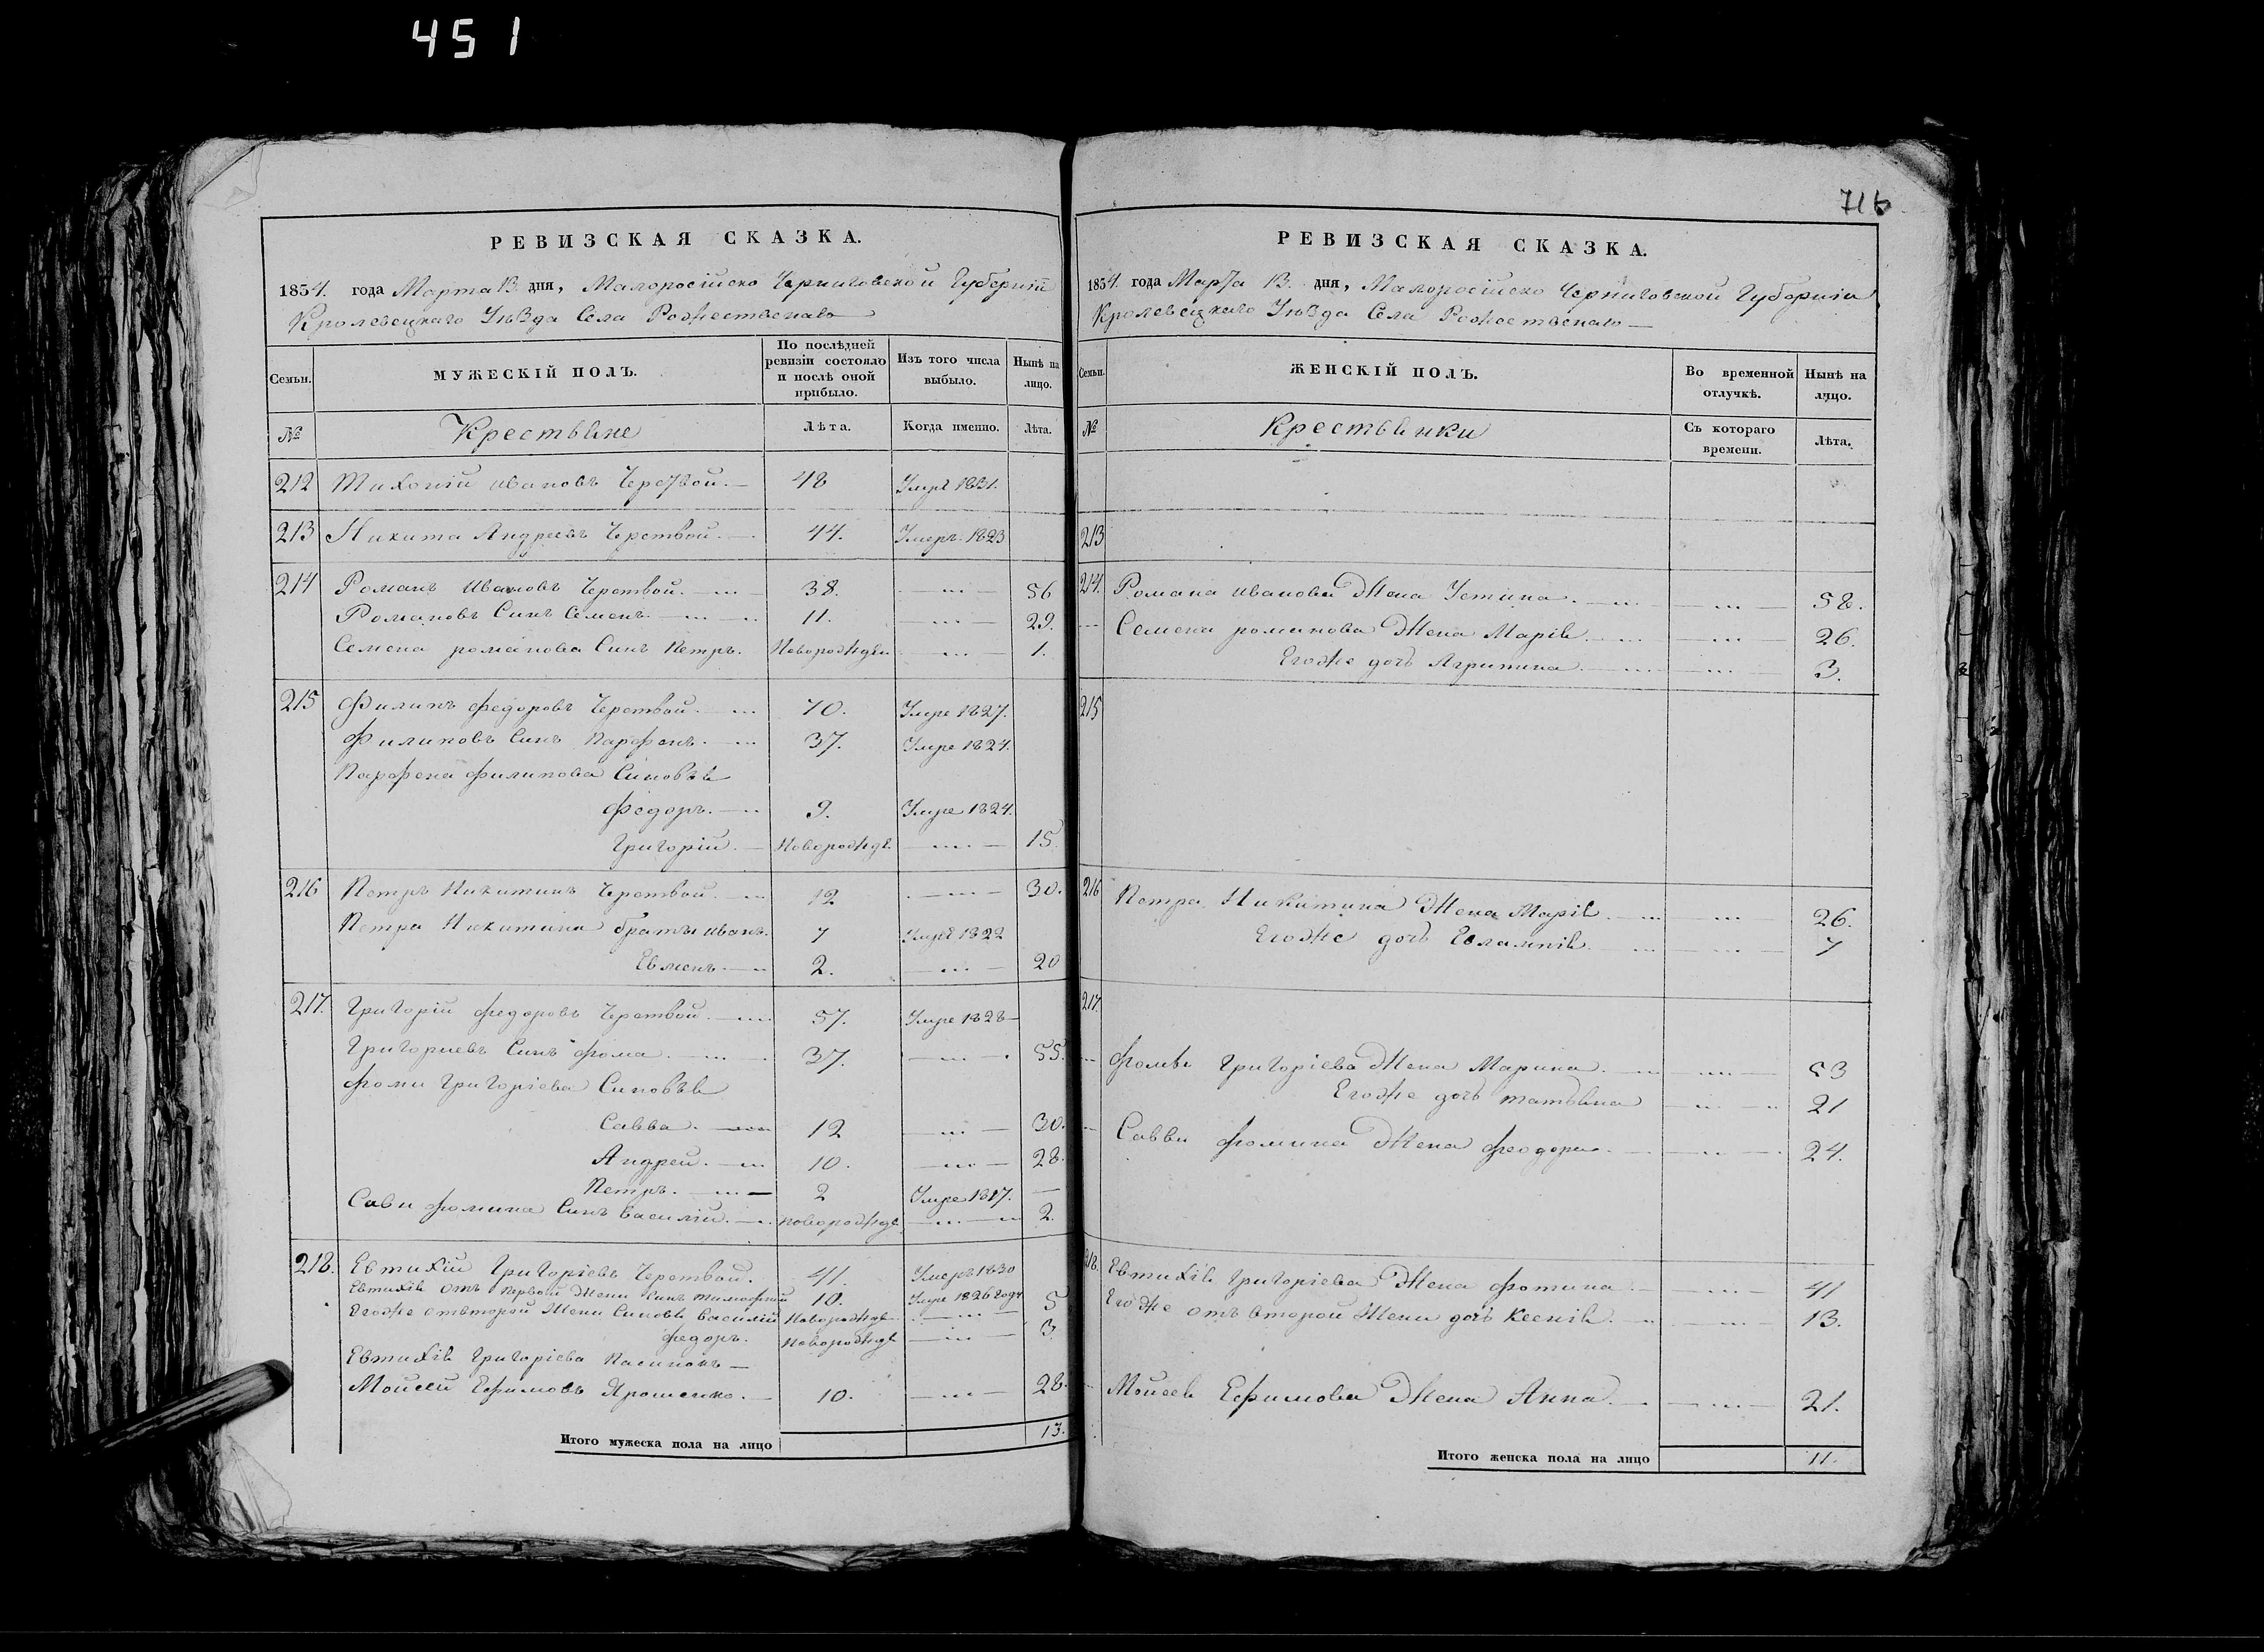 451
716
РЕВИЗСКАЯ СКАЗКА.
1834. года Марта 13 дня, Малоросійско Черниговской Губерніи
Кролевецкаго Уѣзда Села Рожественаго
Семьи. МУЖЕСКІЙ ПОЛЪ. По послѣдней ревизіи состояло и послѣ оной прибыло. Изъ того числа выбыло. Нынѣ на лицо.
№ Крестьяне Лѣта. Когда именно. Лѣта.
212 Тихоній Ивановъ Черствой. 48 Умре 1831.
213 Никита Андреевъ Черствой. 44. Умеръ 1823
214 Романъ Ивановъ Черствой. 38. 56
Романовъ Синъ Семенъ 11. 29.
Семена романова Синъ Петръ. Новорожден 1.
215 Филипъ федоровъ Черствой. 70. Умре 1827.
Филиповъ Синъ Парфенъ. 37. Умре 1824.
Парфена филипова Синовья
Федоръ. 9. Умре 1824.
Григорій. Новорожде. 15.
216 Петръ Никитинъ Черствой. 12 30.
Петра Никитина братья иванъ. 7 Умре 1822
Евменъ 2. 20
217. Григорій федоровъ Черствой. 57. Умре 1828
Григориевъ Синъ фома. 37. 55.
Фоми Григоріева Синовья
Савва. 12 30.
Андрей. 10. 28.
Петръ. 2 Умре 1817.
Сави фомина Синъ василій. новорожде 2.
218. Евтихій Григоріевъ Черствой. 41. Умеръ 1830
Евтихія отъ первой Жени Синъ тимофей 10. Умре 1826 году
Егоже отвторой Жени Синовья василій Новорожде 5
федоръ. Новорожде 3.
Евтихія Григоріева Пасинокъ
Мойсей Ефимовъ Ярошенко. 10. 28.
Итого мужеска пола на лицо 13.
РЕВИЗСКАЯ СКАЗКА.
1834. года Марта 13. дня, Малоросійско Черниговской Губерніи
Кролевецкаго Уѣзда Села Рожественаго
Семьи. ЖЕНСКІЙ ПОЛЪ. Во временной отлучкѣ. Нынѣ на лицо.
№ Крестьянки Съ котораго времени. Лѣта.
213
214. Романа иванова Жена Устина. 58.
Семена романова Жена Марія. 26.
Егоже дочь Агрипина. 3.
215
216 Петра Никитина Жена Марія. 26.
Егоже дочь Евлампія. 7
217.
Фомы Григоріева Жена Марина. 53
Егоже дочь татьяна 21
Савви фомина Жена феодора. 24.
218. Евтихія Григоріева Жена фотина. 41
Егоже отъ второй Жени дочь Ксенія. 13.
Мойсея Ефимова Жена Анна. 21.
Итого женска пола на лицо 11.